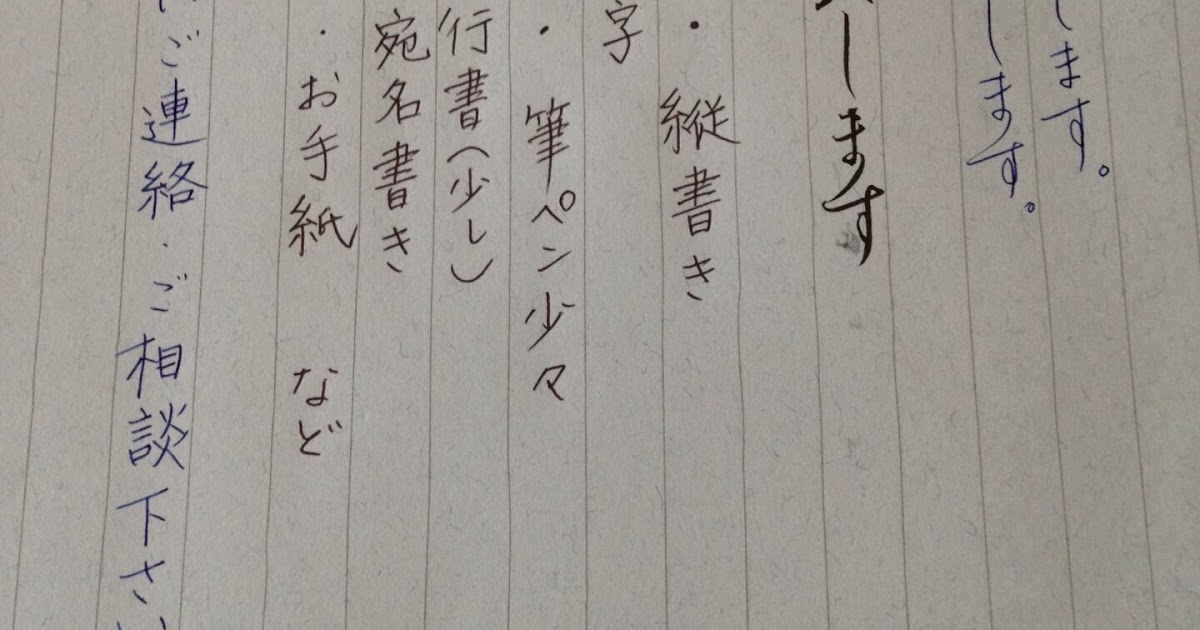 します。
します。
します
・ 縦書き
字
・ 筆ペン少々
行書(少し)
宛名書き
・お手紙 など
ご連絡・ご相談下さい